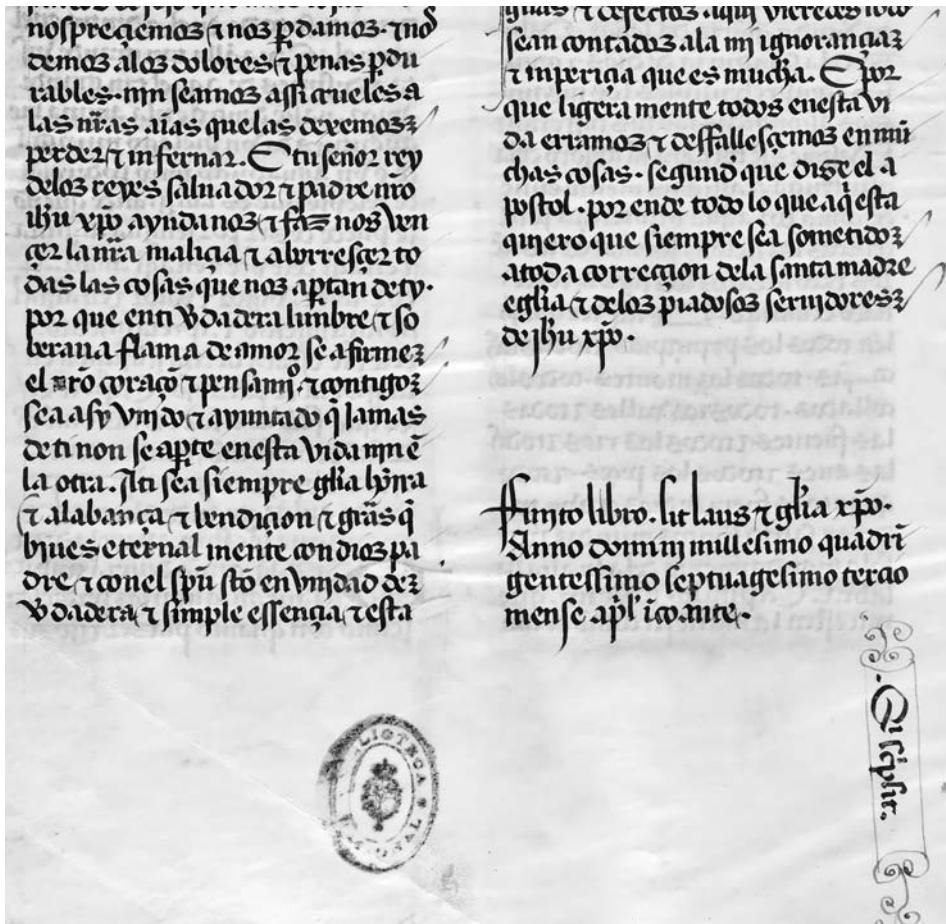 nos preçiemos ⁊ nos ꝑdamos. ⁊ no
demos alos dolores ⁊ penas ꝑdu
rables. nin seamos assi crueles a
las nr̃as aĩas que las dexemos
perder ⁊ infernar. E tu señor rey
delos reyes saluador ⁊ padre nr̃o
ihu xp̃o ayudanos ⁊ faz nos ven
çer la nr̃a maliçia ⁊ aborresçer to
das las cosas que nos aꝑtan dety.
por que enti v̓dadera lunbre ⁊ so
berana flama de amor se afirme
el nr̃o coraçõ ⁊ pensamiº. ⁊ contigo
sea asy vnido ⁊ ayuntado q̃ jamas
de ti non se aꝑte enesta vida nin ẽ
la otra. Ati sea siempre gl̃ia hõrra
⁊ alabança ⁊ bendiçion ⁊ grãs q̃
biues eternal mente con dios pa
dre. ⁊ conel sp̃u sc̃o en vnidad de
v̓dadera ⁊ simple essençia ⁊ esta
⁊ defectos. aqui
sean contados ala mi ignorançia
⁊ inperiçia que es mucha. E por
que ligera mente todos enesta vi
da erramos ⁊ desfallesçemos en mũ
chas cosas. segund que dise el a
postol. por ende todo lo que aq̃ esta
quiero que siempre sea sometido
atoda correcçion dela santa madre
egl̃ia ⁊ delos piadosos seruidores
de jhu xp̃o.
Finito libro. sit laus ⁊ gl̃ia xp̃o.
Anno domini millesimo quadrin
gentessimo septuagesimo tercio
mense apl̃ icoante.
BIBLIOTECA REAL